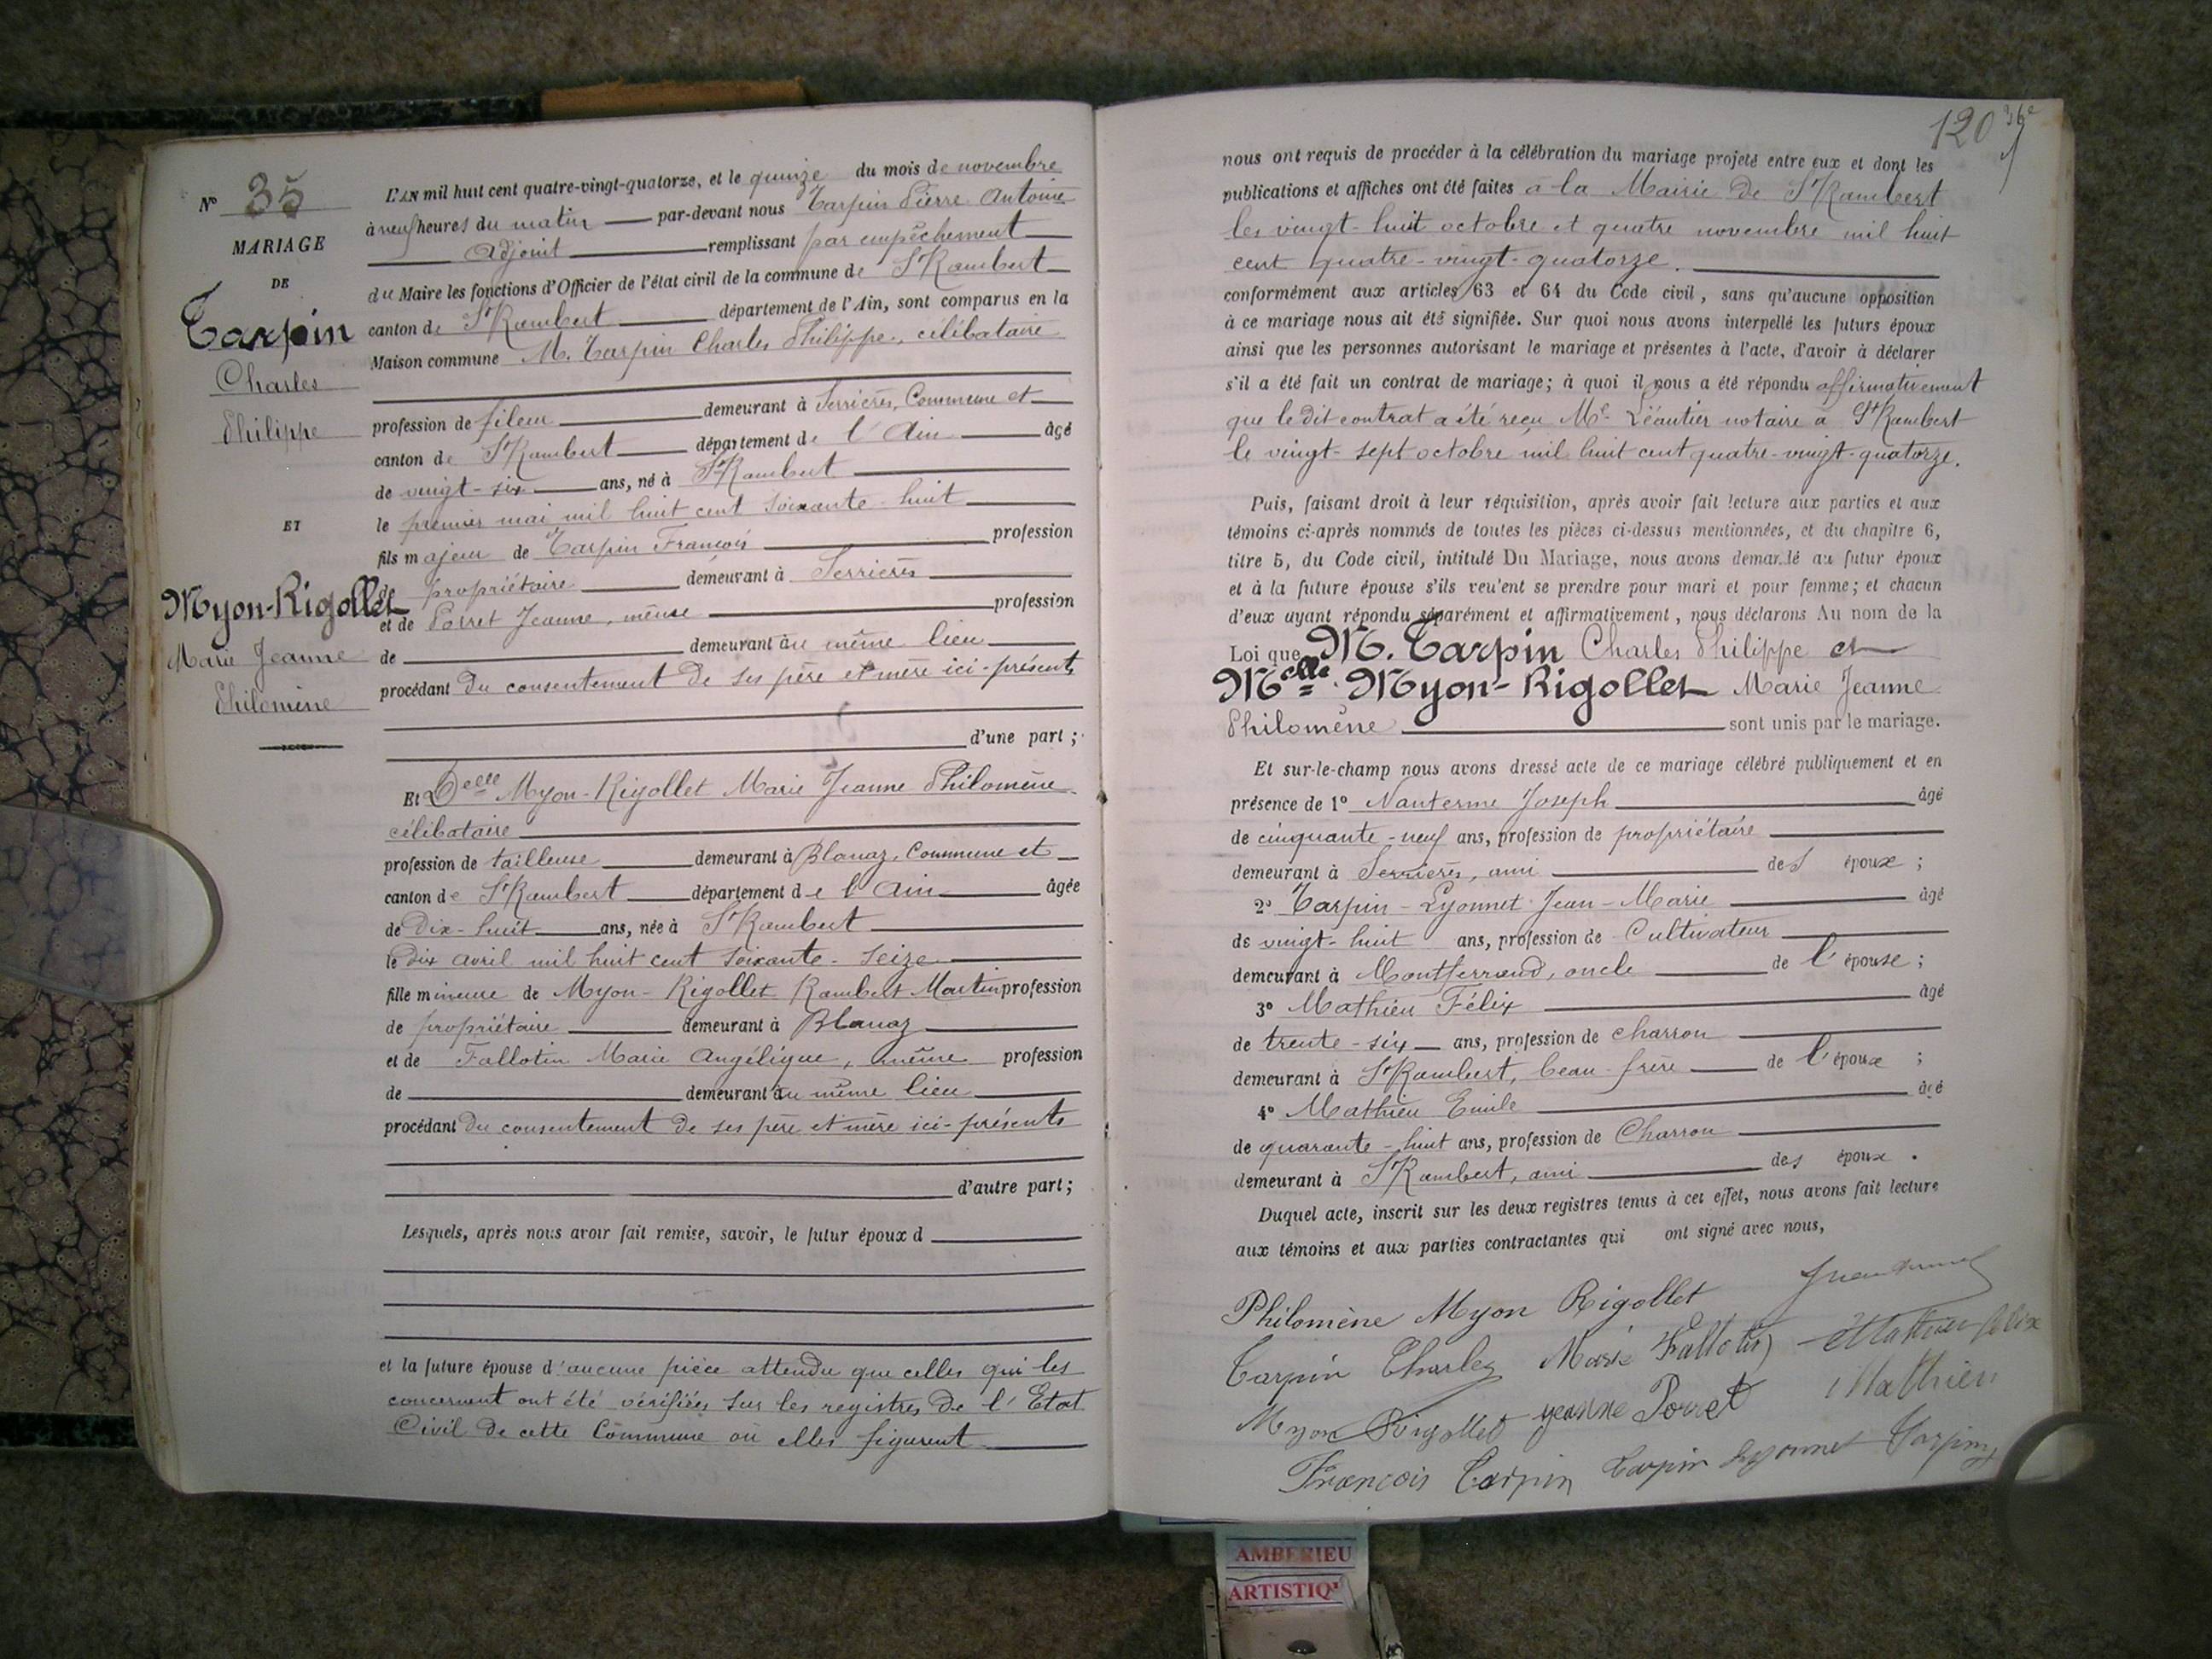 N° 35
MARIAGE
DE
Tarpin
Charles
Philippe
ET
Myon-Rigollet
Marie Jeanne
Philomène
L'AN mil huit cent quatre-vingt-quatorze, et le quinze du mois de novembre
à neuf heures du matin par-devant nous Tarpin Pierre Antoine
Adjoint remplissant par empêchement
du Maire les fonctions d'Officier de l'état civil de la commune de St Rambert
canton de St Rambert département de l'Ain, sont comparus en la
Maison commune M. Tarpin Charles Philippe, célibataire
profession de fileur demeurant à Serrières, Commune et
canton de St Rambert département de l'Ain âgé
de vingt-six ans, né à St Rambert
le premier mai mil huit cent soixante-huit
fils majeur de Tarpin François profession
de propriétaire demeurant à Serrières
et de Porret Jeanne, même profession
de demeurant au même lieu
procédant du consentement de ses père et mère ici-présents
d'une part ;
Et Delle Myon-Rigollet Marie Jeanne Philomène
célibataire
profession de tailleuse demeurant à Blanaz, Commune et
canton de St Rambert département de l'Ain âgée
de Dix-huit ans, née à St Rambert
le dix avril mil huit cent soixante-seize
fille mineure de Myon-Rigollet Rambert Martin profession
de propriétaire demeurant à Blanaz
et de Fallotin Marie Angélique, même profession
de demeurant au même lieu
procédant du consentement de ses père et mère ici-présents
d'autre part ;
Lesquels, après nous avoir fait remise, savoir, le futur époux d
et la future épouse d'aucune pièce attendu que celles qui les
concernent ont été vérifiées sur les registres de l'Etat
Civil de cette Commune où elles figurent
120
nous ont requis de procéder à la célébration du mariage projeté entre eux et dont les
publications et affiches ont été faites à la Mairie de St Rambert
les vingt-huit octobre et quatre novembre mil huit
cent quatre-vingt-quatorze.
conformément aux articles 63 et 64 du Code civil, sans qu'aucune opposition
à ce mariage nous ait été signifiée. Sur quoi nous avons interpellé les futurs époux
ainsi que les personnes autorisant le mariage et présentes à l'acte, d'avoir à déclarer
s'il a été fait un contrat de mariage ; à quoi il nous a été répondu affirmativement
que le dit contrat a été reçu Me Léautier notaire à St Rambert
le vingt-sept octobre mil huit cent quatre-vingt-quatorze.
Puis, faisant droit à leur réquisition, après avoir fait lecture aux parties et aux
témoins ci-après nommés de toutes les pièces ci-dessus mentionnées, et du chapitre 6,
titre 5, du Code civil, intitulé Du Mariage, nous avons demandé au futur époux
et à la future épouse s'ils veulent se prendre pour mari et pour femme ; et chacun
d'eux ayant répondu séparément et affirmativement, nous déclarons Au nom de la
Loi que M. Tarpin Charles Philippe et
Melle Myon-Rigollet Marie Jeanne
Philomène sont unis par le mariage.
Et sur-le-champ nous avons dressé acte de ce mariage célébré publiquement et en
présence de 1° Nanterme Joseph âgé
de cinquante-neuf ans, profession de propriétaire
demeurant à Serrières, ami des époux ;
2° Tarpin-Lyonnet Jean-Marie âgé
de vingt-huit ans, profession de Cultivateur
demeurant à Montferrand, oncle de l'épouse ;
3° Mathieu Félix âgé
de trente-six ans, profession de charron
demeurant à St Rambert, beau-frère de l'époux ;
4° Mathieu Emile âgé
de quarante-huit ans, profession de Charron
demeurant à St Rambert, ami des époux.
Duquel acte, inscrit sur les deux registres tenus à cet effet, nous avons fait lecture
aux témoins et aux parties contractantes qui ont signé avec nous,
Philomène Myon Rigollet
Tarpin Charles Marie Fallotin Mathieu félix
Myon Rigollet jeanne Porret Mathieu
François Tarpin Tarpin Lyonnet Tarpin
AMBERIEU
ARTISTIQ